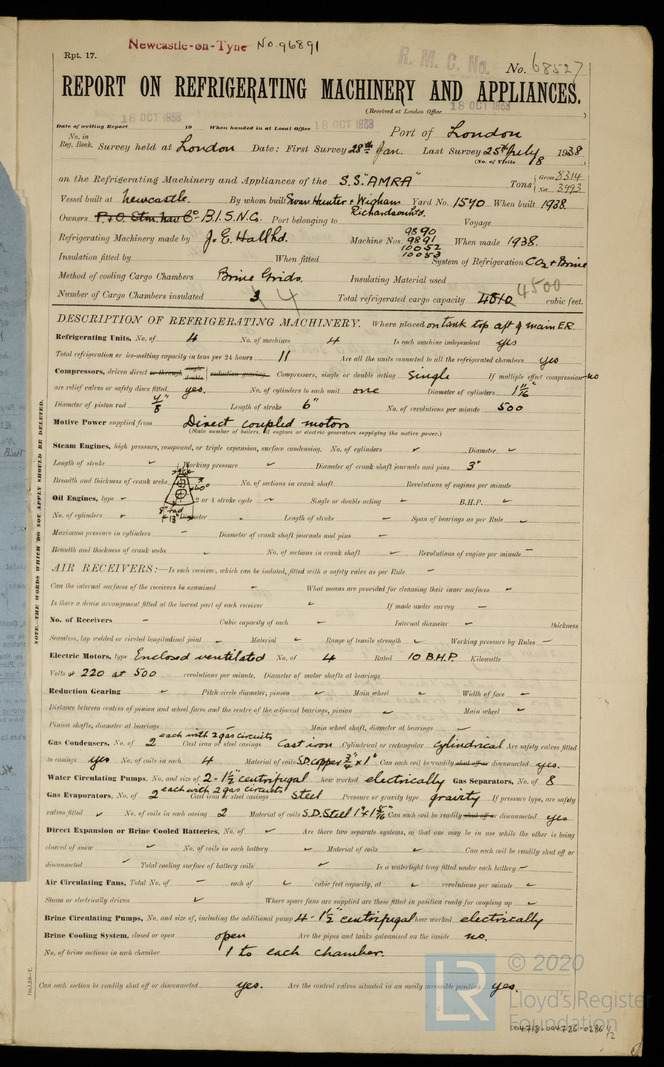 Newcastle-on-Tyne No.96891
Rpt. 17.
R. M. C. No.
No. 68527
REPORT ON REFRIGERATING MACHINERY AND APPLIANCES.
(Received at London Office 18 OCT 1938)
Date of writing Report 18 OCT 1938 19 When handed in at Local Office 18 OCT 1938 Port of London
No. in Reg. Book. Survey held at London Date: First Survey 28th Jan. Last Survey 25th July 1938
(No. of Visits 8)
on the Refrigerating Machinery and Appliances of the S.S. "AMRA" Tons Gross 8314 Net 3993
Vessel built at Newcastle. By whom built Swan Hunter & Wigham Richardson Ltd. Yard No. 1570 When built 1938.
Owners P&O Stm Nav Co B.I.S.N.C. Port belonging to Voyage
Refrigerating Machinery made by J. E. Hall Ltd. Machine Nos. 9890 9891 10052 10053 When made 1938.
Insulation fitted by When fitted System of Refrigeration CO2 & Brine
Method of cooling Cargo Chambers Brine Grids. Insulating Material used
Number of Cargo Chambers insulated 3 4 Total refrigerated cargo capacity 4810 4500 cubic feet.
DESCRIPTION OF REFRIGERATING MACHINERY. Where placed on tank top aft of main E.R.
Refrigerating Units, No. of 4 No. of machines 4 Is each machine independent yes
Total refrigeration or ice-melting capacity in tons per 24 hours 11 Are all the units connected to all the refrigerated chambers yes
Compressors, driven direct or through single double reduction gearing. Compressors, single or double acting Single If multiple effect compression no
are relief valves or safety discs fitted yes. No. of cylinders to each unit one Diameter of cylinders
Diameter of piston rod Length of stroke 6" No. of revolutions per minute 500
Motive Power supplied from Direct coupled motors
(State number of boilers, oil engines or electric generators supplying the motive power.)
Steam Engines, high pressure, compound, or triple expansion, surface condensing. No. of cylinders Diameter
Length of stroke Working pressure Diameter of crank shaft journals and pins 3"
Breadth and thickness of crank webs No. of sections in crank shaft Revolutions of engines per minute
Oil Engines, type 2 or 4 stroke cycle Single or double acting B.H.P.
No. of cylinders Diameter Length of stroke Span of bearings as per Rule
Maximum pressure in cylinders Diameter of crank shaft journals and pins
Breadth and thickness of crank webs No. of sections in crank shaft Revolutions of engine per minute
AIR RECEIVERS:—Is each receiver, which can be isolated, fitted with a safety valve as per Rule
Can the internal surfaces of the receivers be examined What means are provided for cleansing their inner surfaces
Is there a drain arrangement fitted at the lowest part of each receiver If made under survey
No. of Receivers Cubic capacity of each Internal diameter thickness
Seamless, lap welded or riveted longitudinal joint Material Range of tensile strength Working pressure by Rules
Electric Motors, type Enclosed ventilated No. of 4 Rated 10 B.H.P. Kilowatts
Volts 220 at 500 revolutions per minute, Diameter of motor shafts at bearings
Reduction Gearing Pitch circle diameter, pinion Main wheel Width of face
Distance between centres of pinion and wheel faces and the centre of the adjacent bearings, pinion Main wheel
Pinion shafts, diameter at bearings Main wheel shaft, diameter at bearings
Gas Condensers, No. of 2 each with 2 gas circuits Cast iron or steel casings Cast iron Cylindrical or rectangular cylindrical Are safety valves fitted
to casings yes No. of coils in each 4 Material of coils S.D. copper Can each coil be readily shut off or disconnected yes.
Water Circulating Pumps, No. and size of 2-1½" centrifugal how worked electrically Gas Separators, No. of 8
Gas Evaporators, No. of 2 each with 2 gas circuits Cast iron or steel casings Steel Pressure or gravity type gravity If pressure type, are safety
valves fitted No. of coils in each casing 2 Material of coils S.D. Steel Can each coil be readily shut off or disconnected yes
Direct Expansion or Brine Cooled Batteries, No. of Are there two separate systems, so that one may be in use while the other is being
cleared of snow No. of coils in each battery Material of coils Can each coil be readily shut off or
disconnected Total cooling surface of battery coils Is a watertight tray fitted under each battery
Air Circulating Fans, Total No. of each of cubic feet capacity, at revolutions per minute
Steam or electrically driven Where spare fans are supplied are these fitted in position ready for coupling up
Brine Circulating Pumps, No. and size of, including the additional pump 4-1½" centrifugal how worked electrically
Brine Cooling System, closed or open open Are the pipes and tanks galvanised on the inside no.
No. of brine sections in each chamber 1 to each chamber.
Can each section be readily shut off or disconnected yes. Are the control valves situated in an easily accessible position yes.
NOTE.—THE WORDS WHICH DO NOT APPLY SHOULD BE DELETED.
© 2020
LR
Lloyd's Register
Foundation
004718-004726-0286 1/2